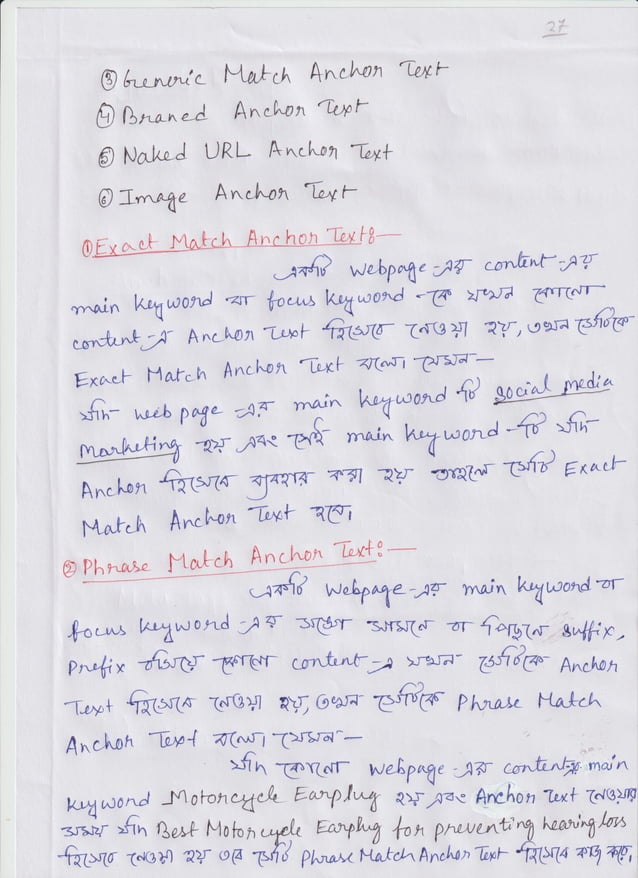 27
③ Generic Match Anchor Text
④ Braned Anchor Text
⑤ Naked URL Anchor Text
⑥ Image Anchor Text
① Exact Match Anchor Text:—
একটি Webpage-এর content-এর
main keyword বা focus keyword-কে যখন কোনো
content-এ Anchor Text হিসেবে নেওয়া হয়, তখন সেটিকে
Exact Match Anchor Text বলে। যেমন—
যদি web page এর main keyword টি social media
Marketing হয় এবং সেই main keyword-টি যদি
Anchor হিসেবে ব্যবহার করা হয় তাহলে সেটি Exact
Match Anchor Text হবে।
② Phrase Match Anchor Text:—
একটি Webpage-এর main keyword বা
focus keyword-এর সঙ্গে সামনে বা পিছনে suffix,
Prefix বসিয়ে কোনো content-এ যখন সেটিকে Anchor
Text হিসেবে নেওয়া হয়, তখন সেটিকে Phrase Match
Anchor Text বলে। যেমন—
যদি কোনো Webpage-এর content main
keyword Motorcycle Earplug হয় এবং Anchor Text নেওয়ার
সময় যদি Best Motorcycle Earplug for preventing hearing loss
হিসেবে নেওয়া হয় তবে সেটি Phrase Match Anchor Text হিসেবে কাজ করে।